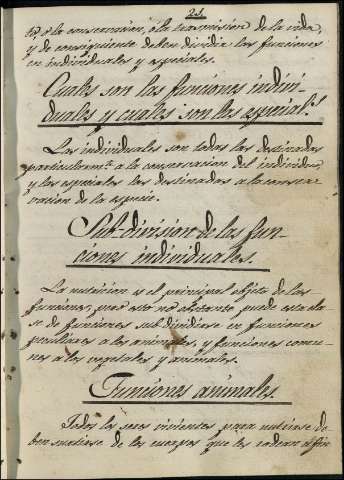 21.
tº, ó la conservacion, ó la trasmision de la vida,
y de consiguiente deben dividir las funciones
en individuales y especiales.
Cuales son las funciones indivi-
duales y cuales son las especial.s
Las individuales son todas las destinadas
particularm.te a la conservacion del individuo,
y las especiales las destinadas a la conser-
vacion de la especie.
Sub-division de las fun-
ciones individuales.
La nutricion es el principal objeto de las
funciones, pero esto no obstante puede esta cla-
se de funciones subdividirse en funciones
peculiares a los animales, y funciones comu-
nes a los vegetales y animales.
Funciones animales.
Todos los seres vivientes para nutrirse de-
ben surtirse de los cuerpos que los rodean á fin